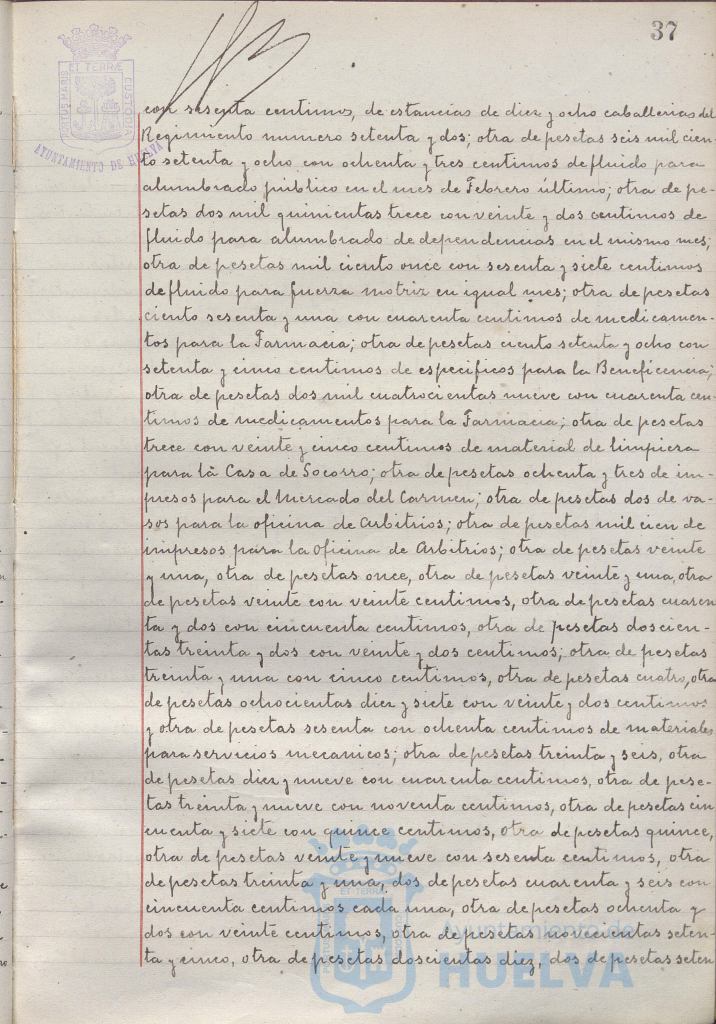 37
PORTUS MARIS ET TERRÆ CUSTODIA
AYUNTAMIENTO DE HUELVA
con sesenta centimos, de estancias de diez y ocho caballerias del
Regimiento numero setenta y dos; otra de pesetas seis mil cien-
to setenta y ocho con ochenta y tres centimos de fluido para
alumbrado público en el mes de Febrero último; otra de pe-
setas dos mil quinientas trece con veinte y dos centimos de
fluido para alumbrado de dependencias en el mismo mes;
otra de pesetas mil ciento once con sesenta y siete centimos
de fluido para fuerza motriz en igual mes; otra de pesetas
ciento sesenta y una con cuarenta centimos de medicamen-
tos para la Farmacia; otra de pesetas ciento setenta y ocho con
setenta y cinco centimos de especificos para la Beneficencia;
otra de pesetas dos mil cuatrocientas nueve con cuarenta cen-
timos de medicamentos para la Farmacia; otra de pesetas
trece con veinte y cinco centimos de material de limpieza
para la Casa de Socorro; otra de pesetas ochenta y tres de im-
presos para el Mercado del Carmen; otra de pesetas dos de va-
sos para la oficina de Arbitrios; otra de pesetas mil cien de
impresos para la oficina de Arbitrios; otra de pesetas veinte
y una, otra de pesetas once, otra de pesetas veinte y una, otra
de pesetas veinte con veinte centimos, otra de pesetas cuaren
ta y dos con cincuenta centimos, otra de pesetas doscien-
tas treinta y dos con veinte y dos centimos; otra de pesetas
treinta y una con cinco centimos, otra de pesetas cuatro, otra
de pesetas ochocientas diez y siete con veinte y dos centimos
y otra de pesetas sesenta con ochenta centimos de materiales
para servicios mecanicos; otra de pesetas treinta y seis, otra
de pesetas diez y nueve con cuarenta centimos, otra de pese-
tas treinta y nueve con noventa centimos, otra de pesetas cin
cuenta y siete con quince centimos, otra de pesetas quince,
otra de pesetas veinte y nueve con sesenta centimos, otra
de pesetas treinta y una, dos de pesetas cuarenta y seis con
cincuenta centimos cada una, otra de pesetas ochenta y
dos con veinte centimos, otra de pesetas novecientas seten-
ta y cinco, otra de pesetas doscientas diez, dos de pesetas seten
Ayuntamiento de
HUELVA